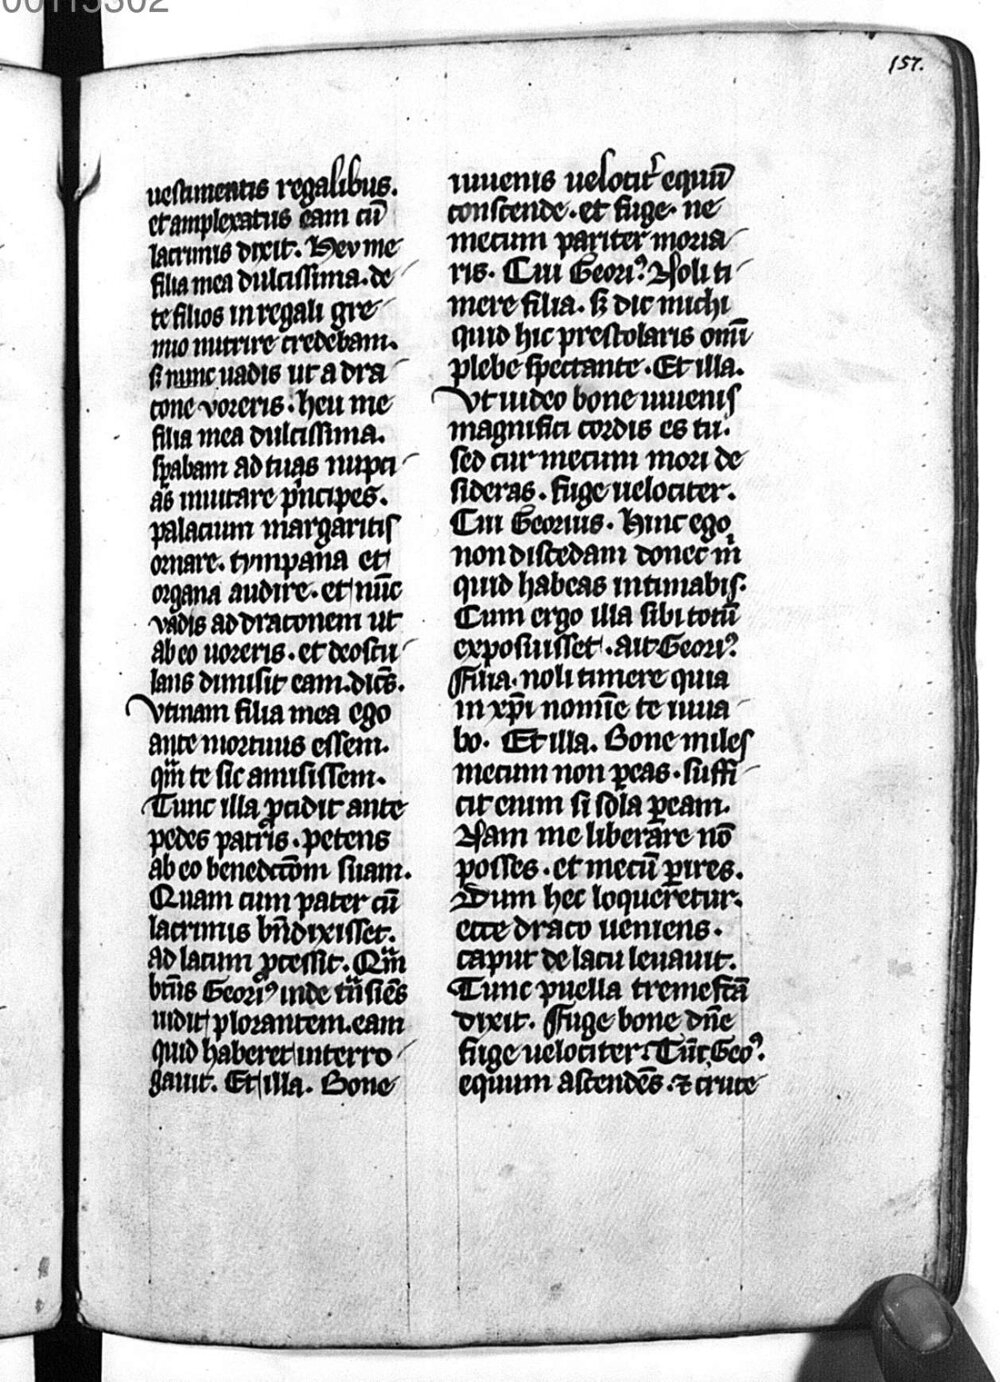 00115302
157.
uestimentis regalibus.
et amplexatus eam cū
lacrimis dixit. Heu me
filia mea dulcissima. de
te filios in regali gre
mio nutrire credebam.
s̄ nunc uadis ut a dra
cone voreris. heu me
filia mea dulcissima.
sp̄abam ad tuas nupci
as inuitare p̄ncipes.
palacium margaritis
ornare. tympana et
organa audire. et nūc
vadis ad draconem ut
ab eo uoreris. et deoscu
lans dimisit eam. dicēs.
Vtinam filia mea ego
ante mortuus essem.
qm̄ te sic amisissem.
Tunc illa p̄cidit ante
pedes patris. petens
ab eo benedcc̄om suam.
Quam cum pater cū
lacrimis bn̄dixisset.
ad lacum p̄cessit. Qm̄
btūs Geori⁹ inde tn̄siēs
uidit plorantem. eam
quid haberet interro
gauit. Et illa. Bone
iuuenis velocit̄ equū
conscende. et fuge. ne
mecum pariter moria
ris. Cui Geori⁹ Noli ti
mere filia. s̄ dic michi
quid hic prestolaris omī
plebe spectante. Et illa.
Vt uideo bone iuuenis
magnifici cordis es tu.
sed cur mecum mori de
sideras. fuge uelociter.
Cui Georius. Hinc ego
non discedam donec m̄
quid habeas intimabis.
Cum ergo illa sibi totū
exposuisset. ait Geori⁹
Filia. noli timere quia
in xp̄i nomīe te iuua
bo. Et illa. Bone miles
mecum non p̄eas. suffi
cit enim si sola p̄eam.
Nam me liberare nō
posses. et mecū p̄ires.
Dum hec loqueretur.
ecce draco ueniens.
caput de lacu leuauit.
Tunc puella tremefc̄a
dixit. Fuge bone dn̄e
fuge uelociter. Tūc Geo⁹.
equum ascendēs. ⁊ cruce